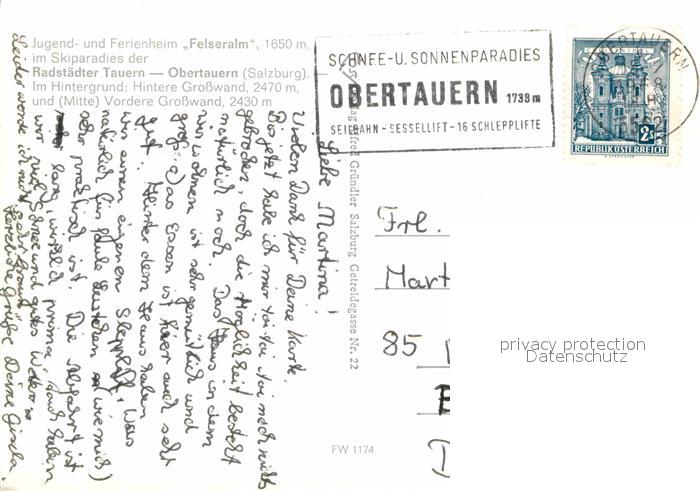 Jugend- und Ferienheim „Felseralm“, 1650 m,
im Skiparadies der
Radstädter Tauern — Obertauern (Salzburg).
Im Hintergrund: Hintere Großwand, 2470 m,
und (Mitte) Vordere Großwand, 2430 m
SCHNEE-U. SONNENPARADIES
OBERTAUERN 1738 m
SEILBAHN - SESSELLIFT - 16 SCHLEPPLIFTE
OBERTAUERN
2S
REPUBLIK ÖSTERREICH
Liebe Martina!
Vielen Dank für Deine Karte.
Bis jetzt habe ich mir toi toi toi noch nichts
gebrochen, doch die Möglichkeit besteht
natürlich noch. Das Haus in dem
wir wohnen ist sehr gemütlich und
groß. Das Essen ist hier auch sehr
gut. Hinter dem Haus haben
wir einen eigenen Schlepplift, was
natürlich für faule Leutchen (wie mich)
sehr praktisch ist. Die Abfahrt ist
lang, wirklich prima. Auch haben
wir viel Schnee und gutes Wetter.
Leider werde ich nicht sehr braun.
Herzliche Grüße Deine Gisela.
Gründler Salzburg Getreidegasse Nr. 22
Frl.
Mart
85
privacy protection
Datenschutz
FW 1174